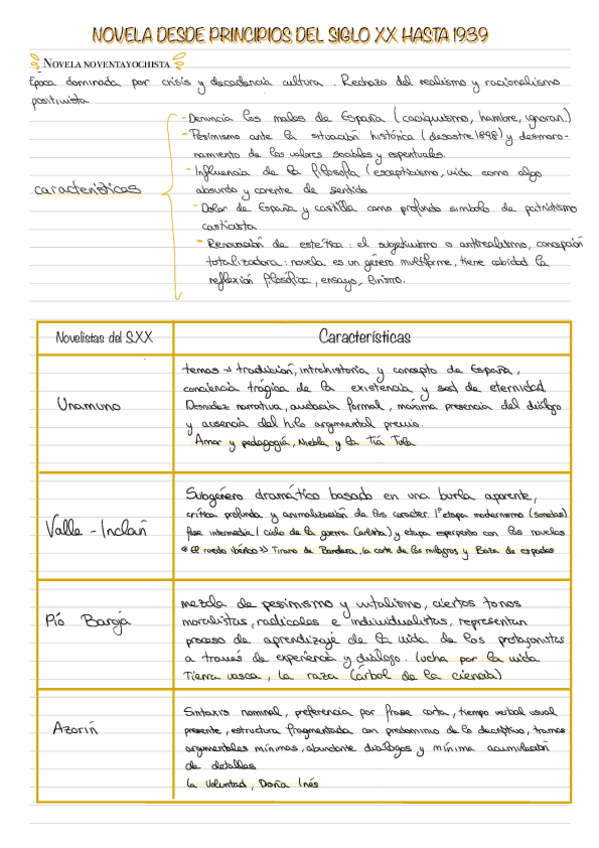 NOVELA DESDE PRINCIPIOS DEL SIGLO XX HASTA 1939
NOVELA NOVENTAYOCHISTA
Época dominada por crisis y decadencia cultura. Rechazo del realismo y racionalismo
positivista
características
- Denuncia los males de España (caciquismo, hambre, ignoran.)
- Pesimismo ante la situación histórica (desastre 1898) y desmoro-
namiento de los valores sociales y espirituales.
- Influencia de la filosofía (escepticismo, vida como algo
absurdo y carente de sentido
- Dolor de España y castilla como profundo símbolo de patriotismo
casticista
- Renovación de estética: el subjetivismo o antirrealismo, concepción
totalizadora: novela es un género multiforme, tiene cabidad la
reflexión filosófica, ensayo, lirismo.
Novelistas del S.XX
Características
Unamuno
temas → tradición, intrahistoria y concepto de España,
conciencia trágica de la existencia y sed de eternidad.
Desnudez narrativa, audacia formal, máxima presencia del diálogo
y ausencia del hilo argumental previo.
Amor y pedagogía, Niebla y la Tía Tula
Valle-Inclán
Subgénero dramático basado en una burla aparente,
crítica profunda y animalización de los caracter. 1ª etapa modernismo (sonatas)
fase intermedia (ciclo de la guerra Carlista) y etapa esperpento con las novelas
«El ruedo ibérico» Tirano de Banderas, la corte de los milagros y Baza de espadas
Pío Baroja
mezcla de pesimismo y vitalismo, ciertos tonos
moralistas, radicales e individualistas, representan
proceso de aprendizaje de la vida de los protagonistas
a través de experiencia y diálogo. lucha por la vida
Tierra vasca, La raza (árbol de la ciencia)
Azorín
Sintaxis nominal, preferencia por frase corta, tiempo verbal usual
presente, estructura fragmentada con predominio de lo descriptivo, tramas
argumentales mínimas, abundante diálogos y mínima acumulación
de detalles
La Voluntad, Doña Inés